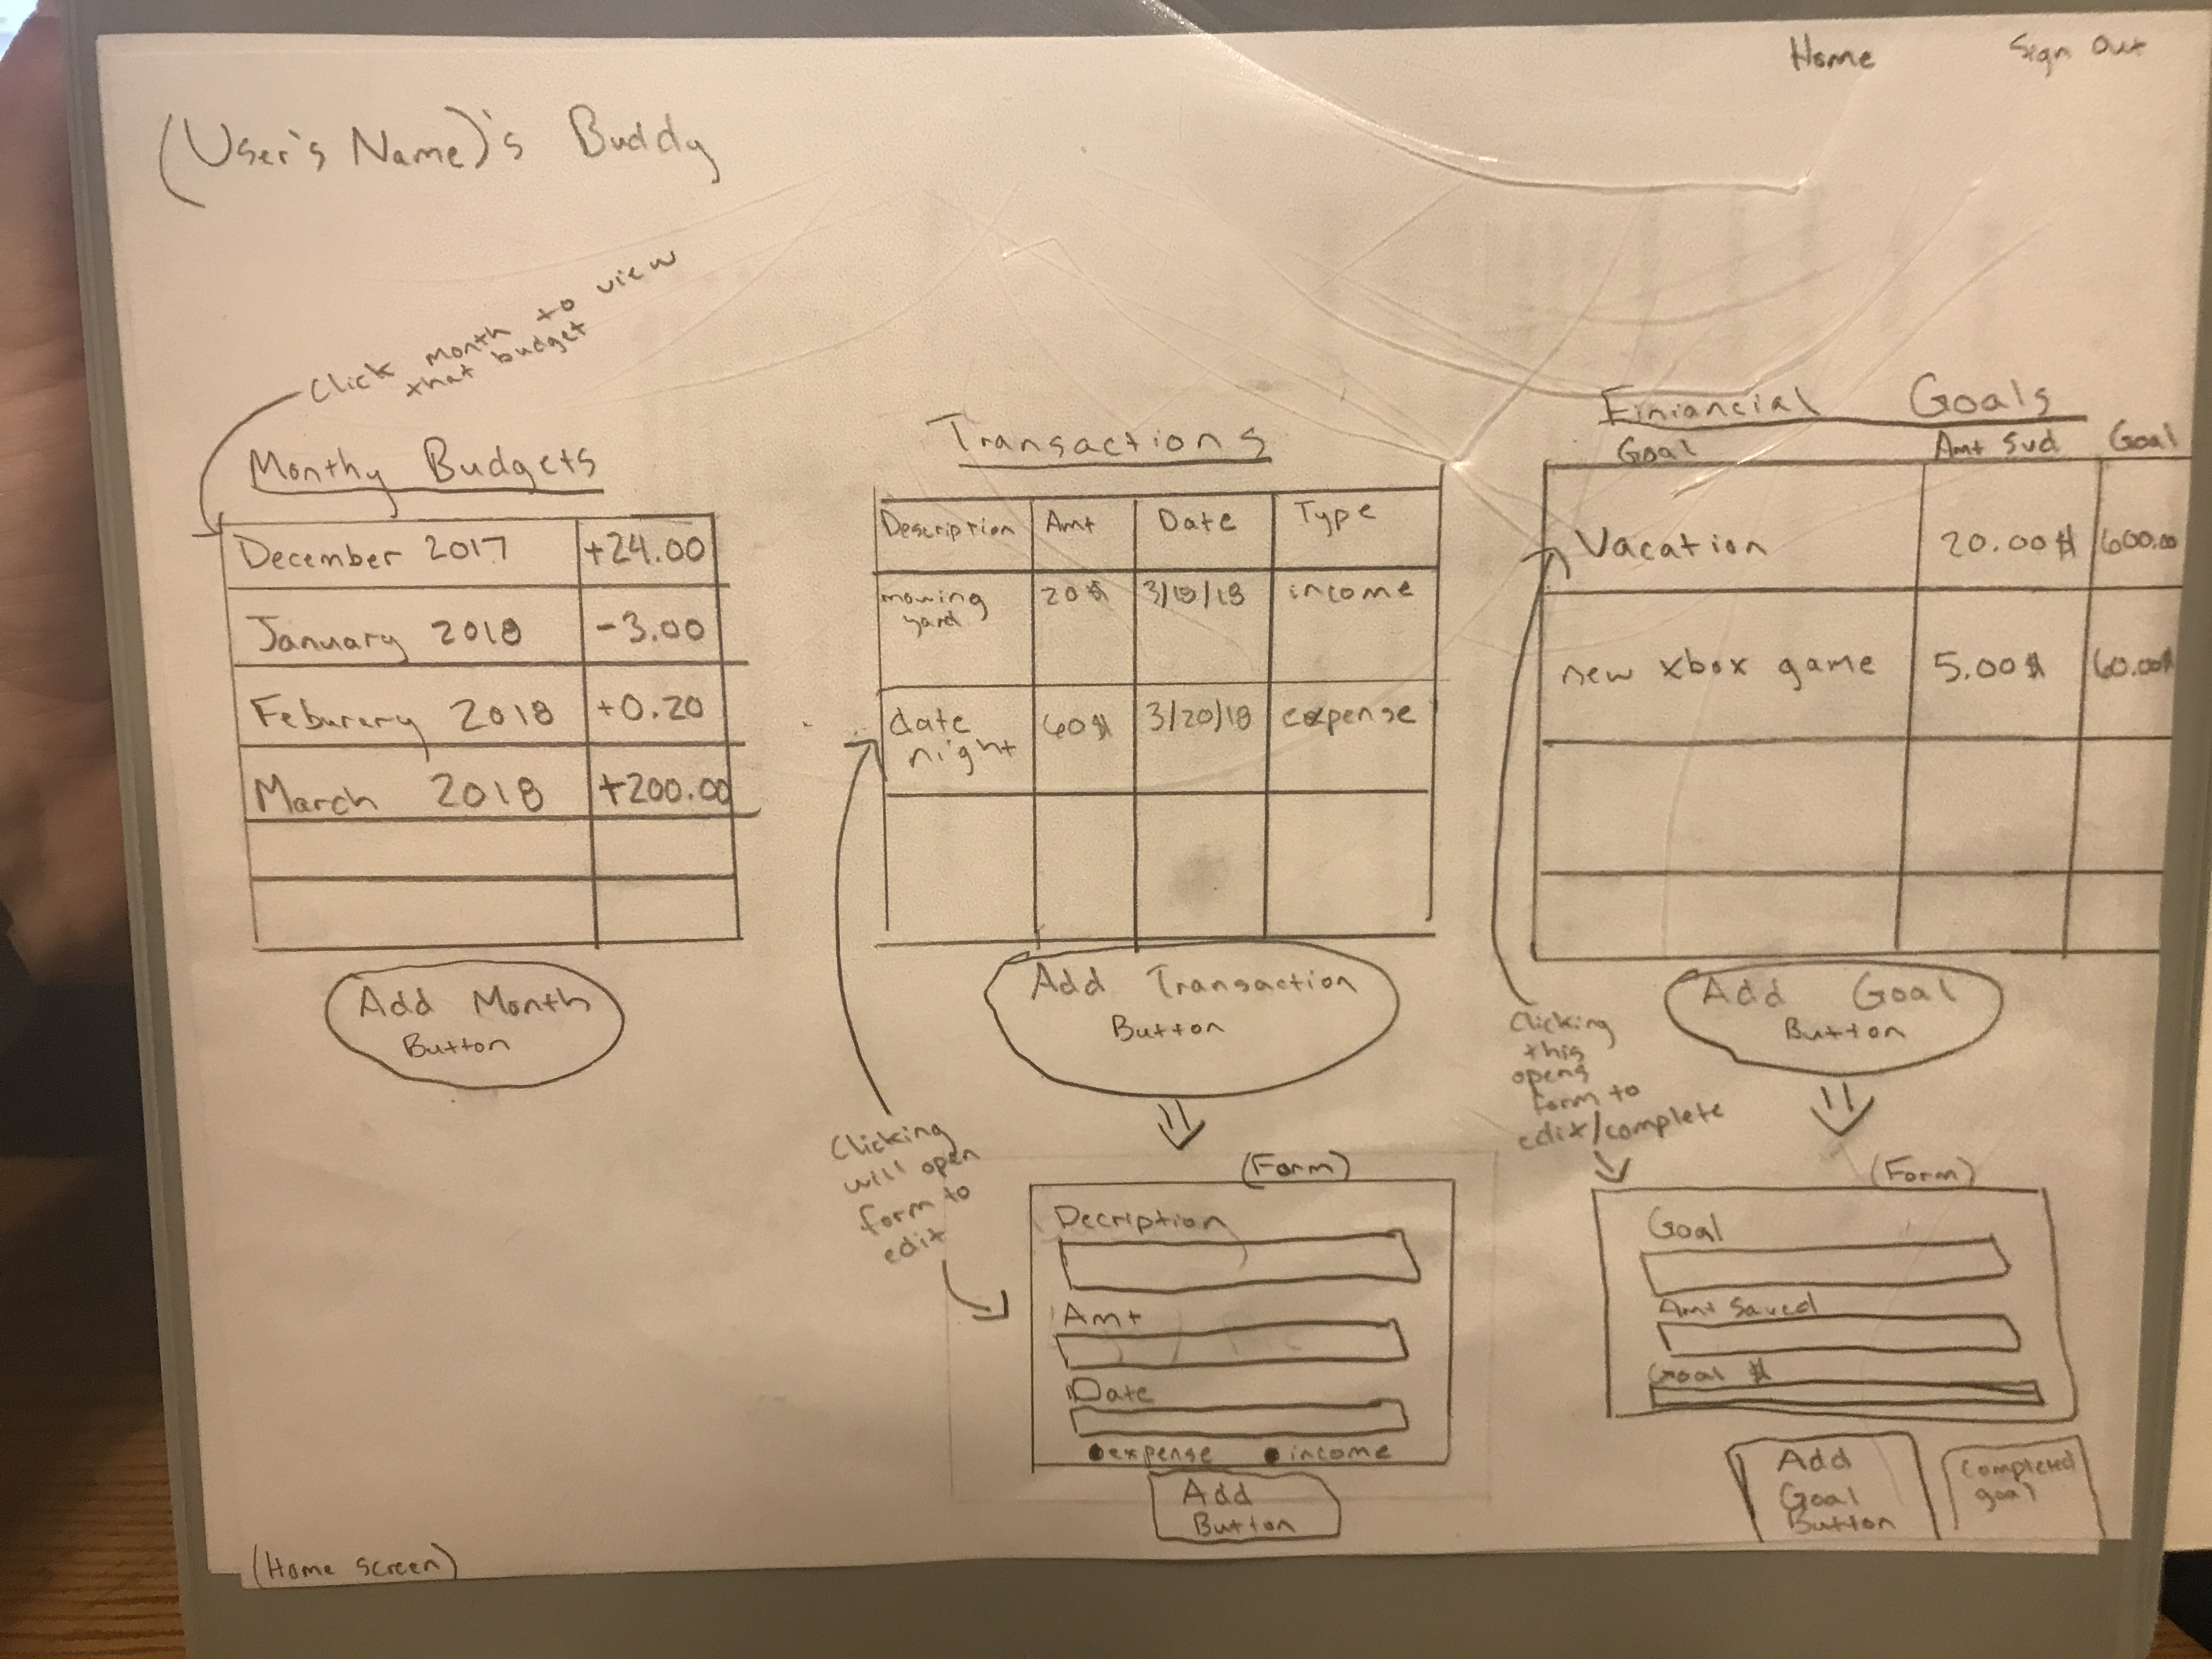 Home Sign Out
(User's Name)'s Buddy
Click month to view
that budget
Monthy Budgets
December 2017 +24.00
January 2018 -3.00
Feburary 2018 +0.20
March 2018 +200.00
Add Month
Button
Transactions
Description Amt Date Type
mowing 20$ 3/18/18 income
yard
date 60$ 3/20/18 expense
night
Add Transaction
Button
Clicking
will open
form to
edit
(Form)
Decription
Amt
Date
expense income
Add
Button
Finiancial Goals
Goal Amt Svd Goal
Vacation 20.00$ 600.00
new xbox game 5.00$ 60.00$
Add Goal
Button
Clicking
this
opens
form to
edit/complete
(Form)
Goal
Amt Saved
Goal $
Add
Goal
Button
Completed
goal
(Home Screen)